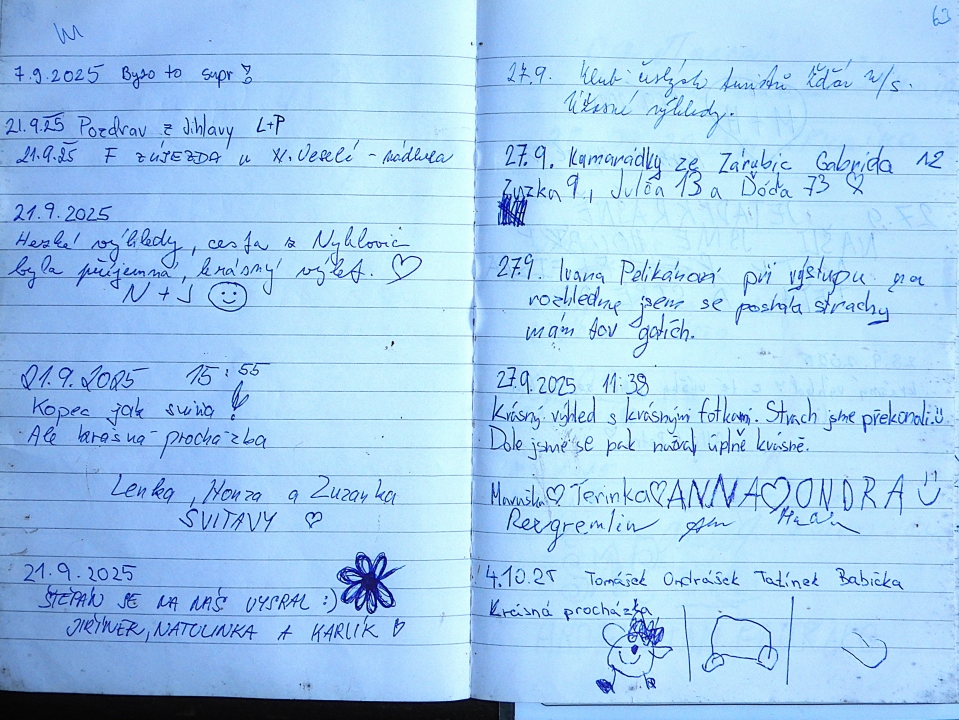 7.9.2025 Bylo to supr!
21.9.25 Pozdrav z Jihlavy L+P
21.9.25 F ZÁJEZDA u N. Veselí - nádhera
21.9.2025
Hezké výhledy, cesta z Nyklovic
byla příjemná, krásný výlet. ♡
N + J ☺
21.9.2025 15:55
Kopec jak svina!
Ale krásná procházka
Lenka, Honza a Zuzanka
SVITAVY ♡
21.9.2025
ŠTĚPÁN SE NA NÁS VYSRAL :)
JIŘINEK, NATOLINKA A KARLÍK ♡
63
27.9. Klub českých turistů Žďár n/s.
Úžasné výhledy.
27.9. Kamarádky ze Zárubic Gabriela 12
Zuzka 9., Julča 13 a Dóďa 73 ♡
27.9. Ivana Pelikánová při výstupu na
rozhlednu jsem se posrala strachy
mám tov gatích.
27.9.2025 11:38
Krásný výhled s krásnými fotkami. Strach jsme překonali. :)
Dole jsme se pak úplně krásně.
Maruška ♡ Terinka ♡ ANNA ♡ ONDRA :)
Rexgremlin
4.10.25 Tomášek Ondrášek Tatínek Babička
Krásná procházka